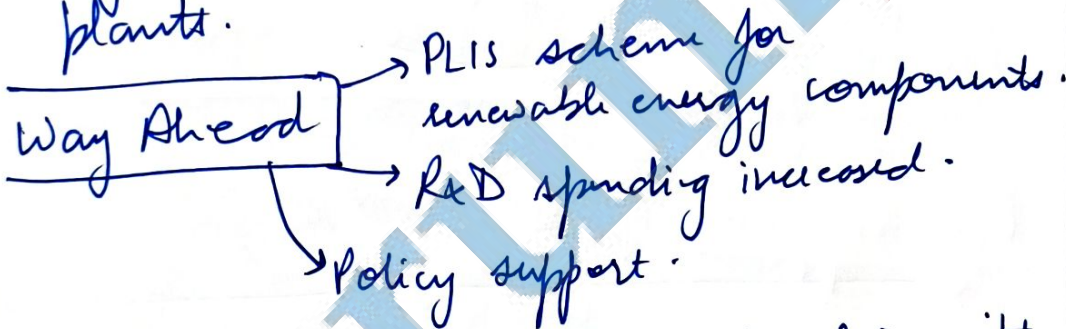 plants.
PLIS scheme for
renewable energy components.
Way Ahead
R&D spending increased.
Policy support.